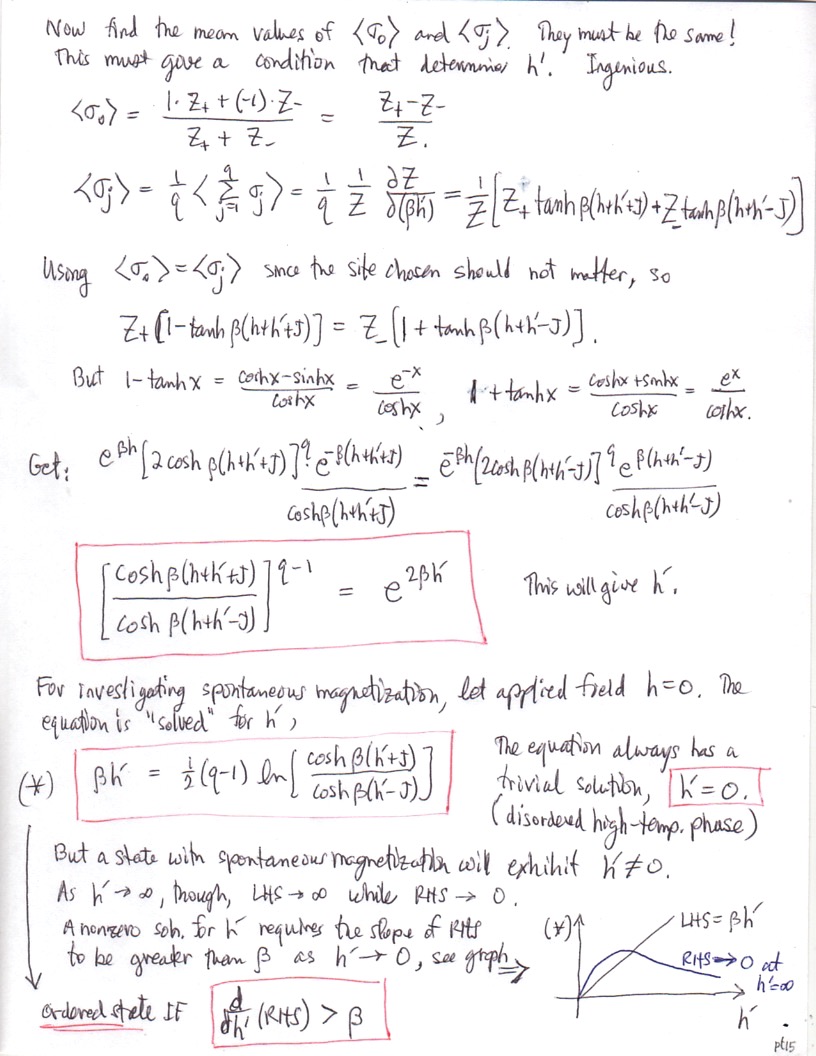 Now find the mean values of ⟨σ₀⟩ and ⟨σⱼ⟩. They must be the same!
This must give a condition that determines h'. Ingenious.
⟨σ₀⟩ = (1·Z₊ + (-1)·Z₋)/(Z₊ + Z₋) = (Z₊ - Z₋)/Z.
⟨σⱼ⟩ = 1/q ⟨∑_{j=1}^{q} σⱼ⟩ = 1/q 1/Z ∂Z/∂(βh') = 1/Z [Z₊ tanh β(h+h'+J) + Z₋ tanh β(h+h'-J)]
Using ⟨σ₀⟩ = ⟨σⱼ⟩ since the site chosen should not matter, so
Z₊ [1 - tanh β(h+h'+J)] = Z₋ [1 + tanh β(h+h'-J)].
But 1 - tanh x = (cosh x - sinh x)/cosh x = e^{-x}/cosh x, 1 + tanh x = (cosh x + sinh x)/cosh x = e^{x}/cosh x.
Get: e^{βh} [2 cosh β(h+h'+J)]^q e^{-β(h+h'+J)}/cosh β(h+h'+J) = e^{-βh} [2cosh β(h+h'-J)]^q e^{β(h+h'-J)}/cosh β(h+h'-J)
[cosh β(h+h'+J)/cosh β(h+h'-J)]^{q-1} = e^{2βh'} This will give h'.
For investigating spontaneous magnetization, let applied field h=0. The
equation is "solved" for h',
(*) βh' = ½(q-1) ln[cosh β(h'+J)/cosh β(h'-J)]
The equation always has a
trivial solution, h'=0.
(disordered high-temp. phase)
But a state with spontaneous magnetization will exhibit h' ≠ 0.
As h' → ∞, though, LHS → ∞ while RHS → 0.
A nonzero soln. for h' requires the slope of RHS
to be greater than β as h' → 0, see graph ⇒
ordered state IF d/dh' (RHS) > β
(*)
LHS = βh'
RHS → 0 at
h'=∞
h'
pt15